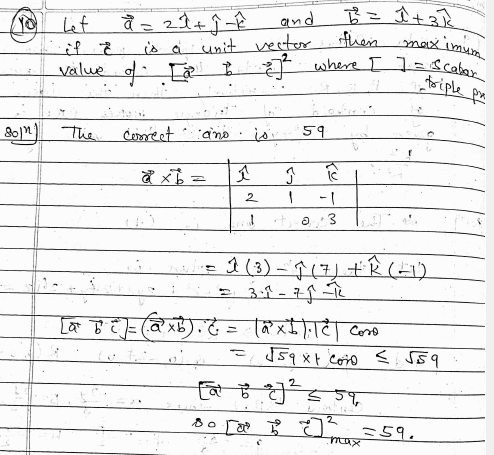 10 Let a⃗ = 2î + ĵ - k̂ and b⃗ = î + 3k̂
if c⃗ is a unit vector then maximum
value of [a⃗ b⃗ c⃗]² where [ ] = scalar
triple
soln] The correct ans. is 59
a⃗ × b⃗ = | î ĵ k̂ |
2 1 -1
1 0 3
= î (3) - ĵ (7) + k̂ (-1)
= 3î - 7ĵ - k̂
[a⃗ b⃗ c⃗] = (a⃗ × b⃗) . c⃗ = |a⃗ × b⃗| . |c⃗| cosθ
= √59 × 1 cosθ ≤ √59
[a⃗ b⃗ c⃗]² ≤ 59
so [a⃗ b⃗ c⃗]² max = 59.